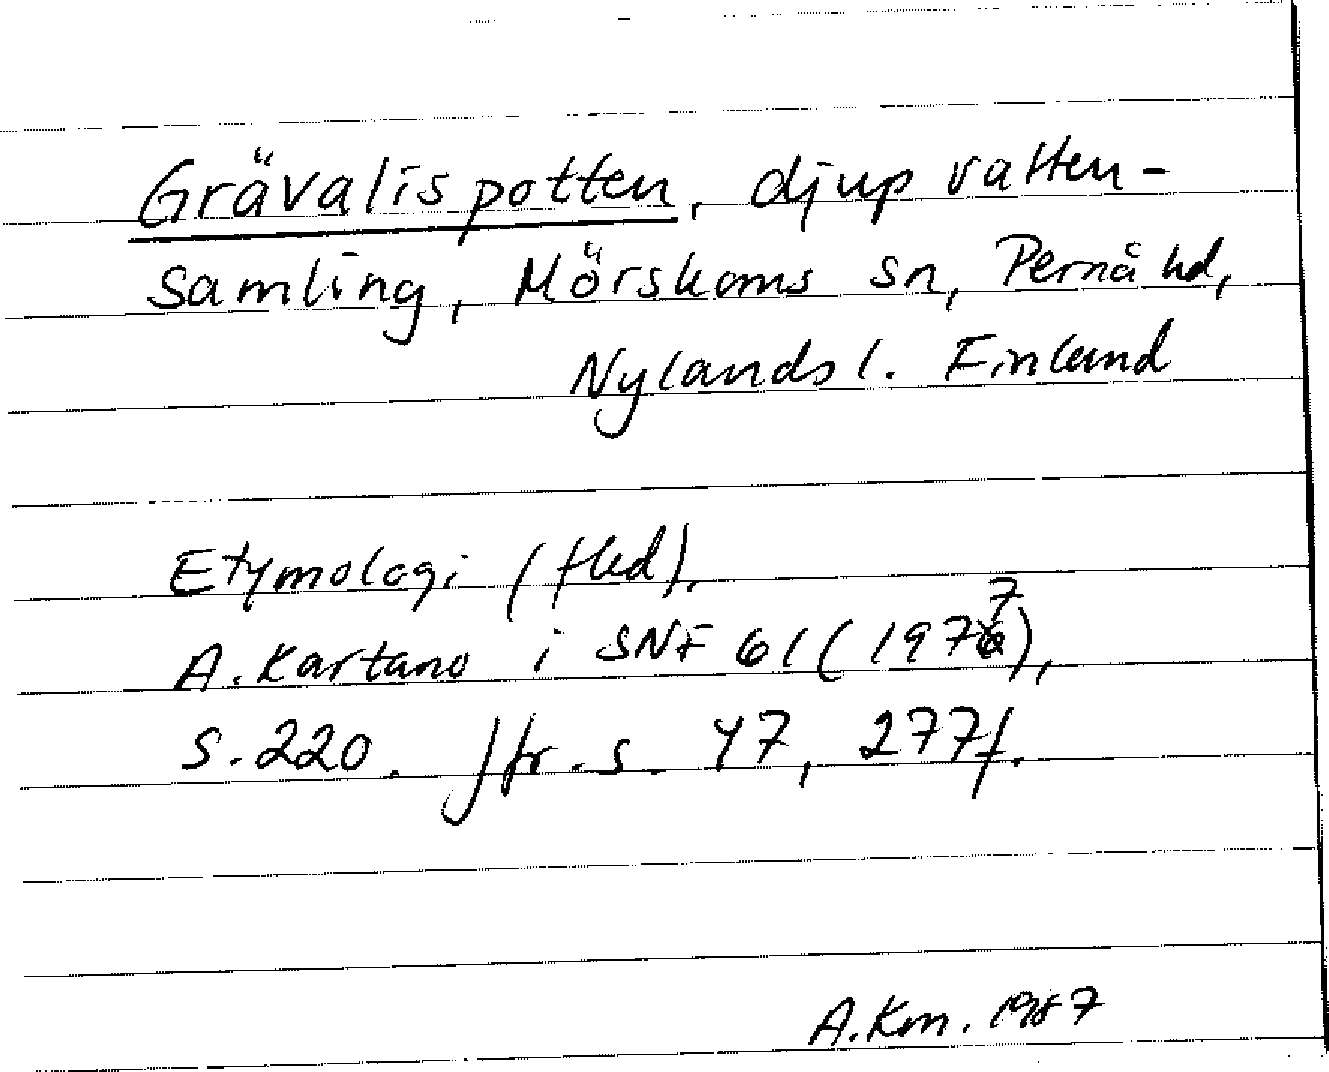 Grävalispotten, djup vatten-
samling, Mörskoms sn, Pernå hd,
Nylands l. Finland
Etymologi (fled).
A. Kartano i SNF 61 (1977),
s. 220. Jfr. s. 47, 277f.
A.Km. 1987